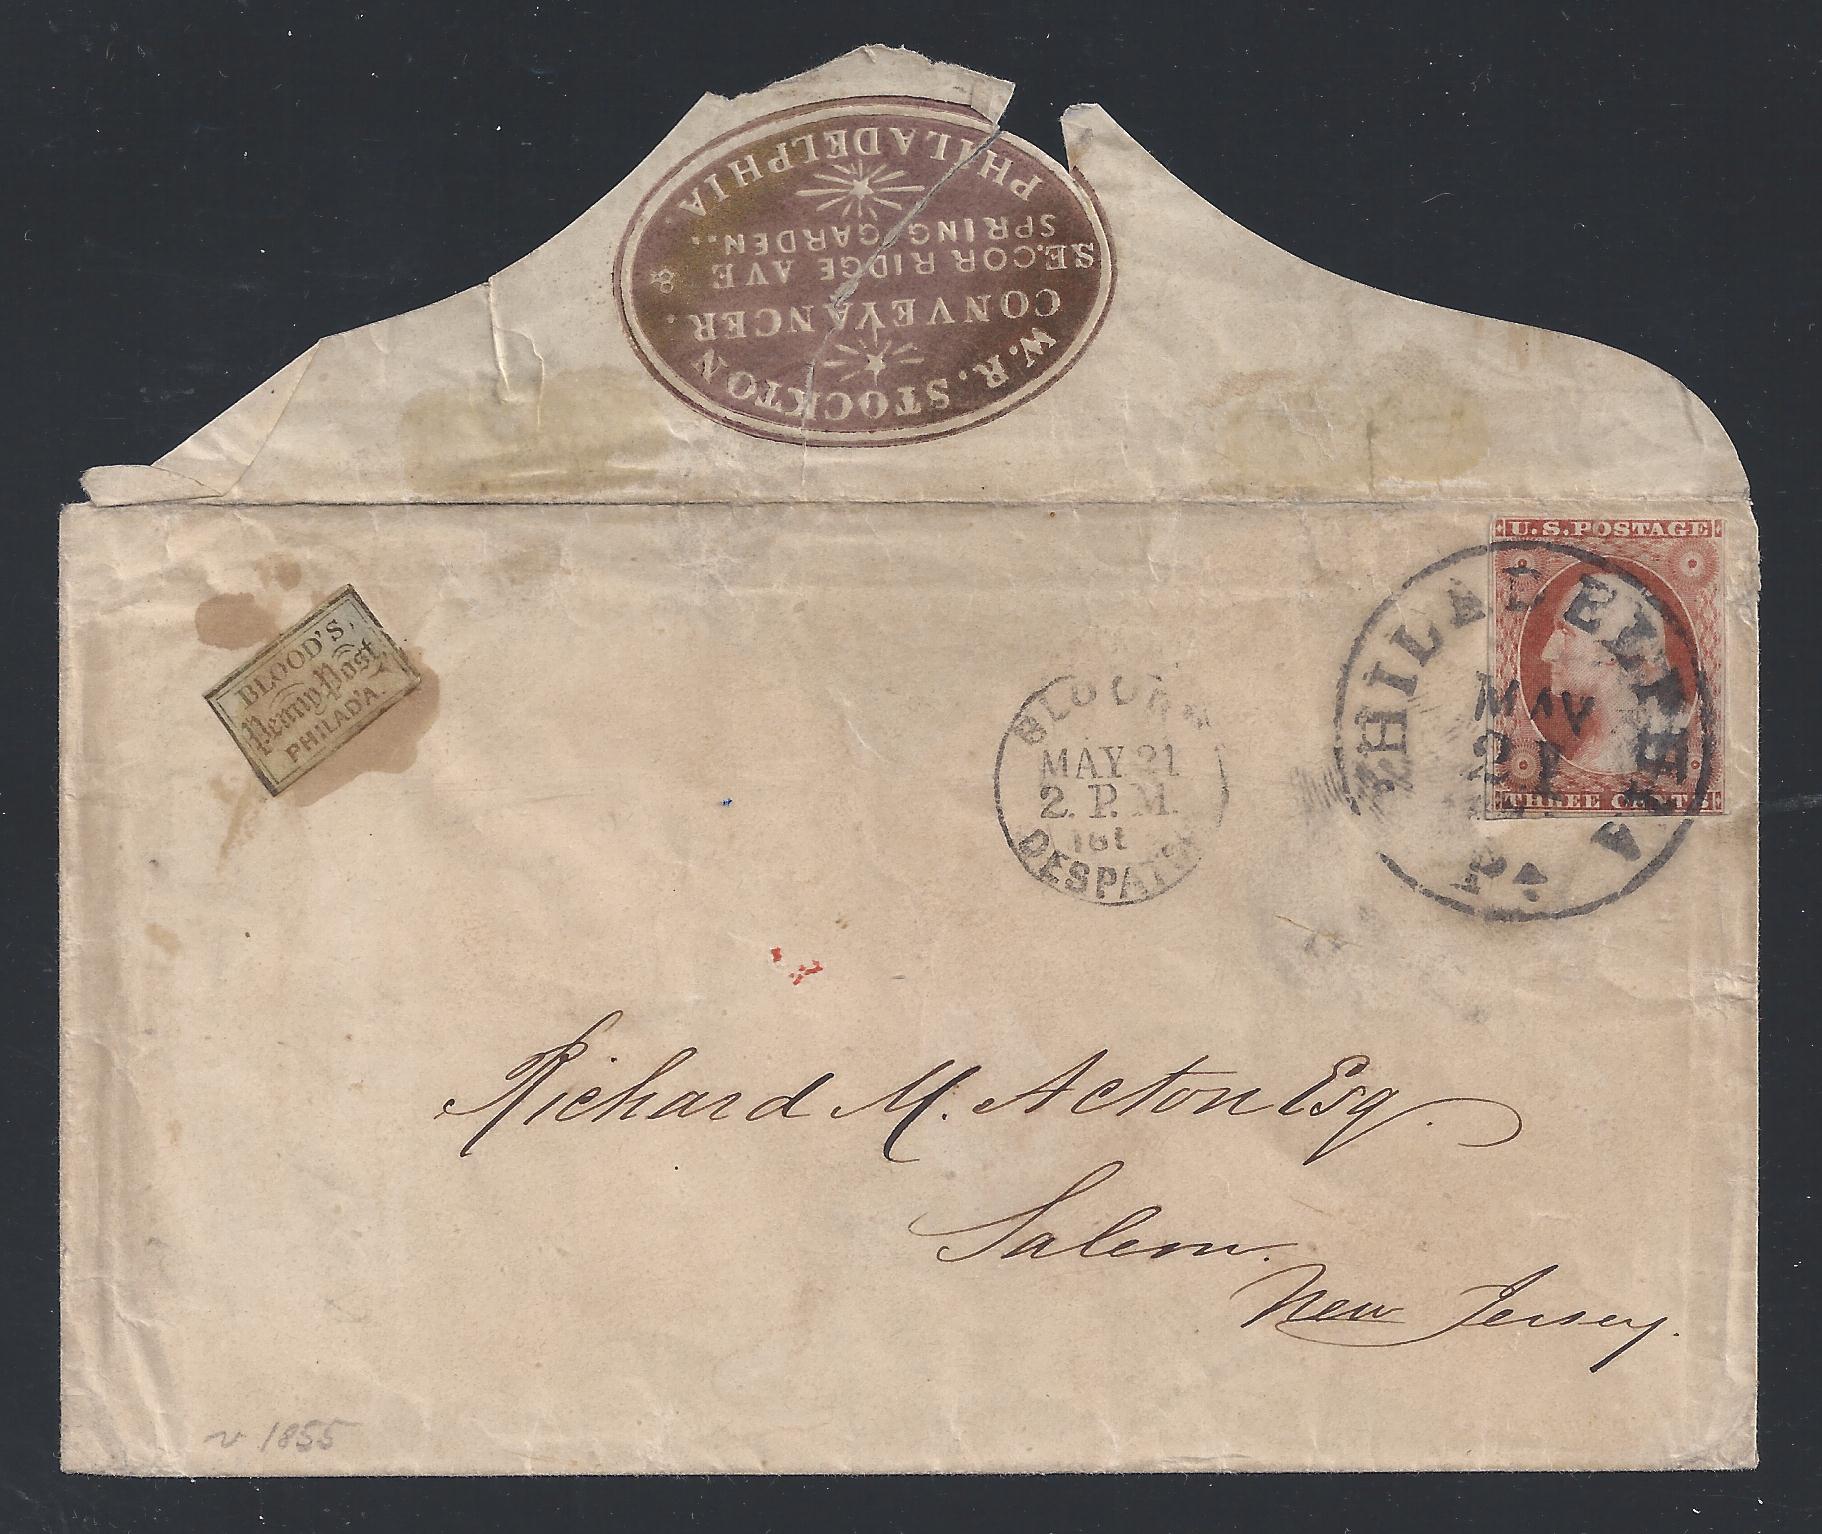 W. R. STOCKTON
CONVEYANCER.
SE. COR RIDGE AVE &
SPRING GARDEN..
PHILADELPHIA.
BLOOD'S,
Penny Post,
PHILAD'A.
U.S. POSTAGE
THREE CENTS
PHILADELPHIA
MAY
21
Pa
BLOOD'S
MAY 21
2. P.M.
DESPATCH
Richard M. Acton Esq.
Salem.
New Jersey.
1855